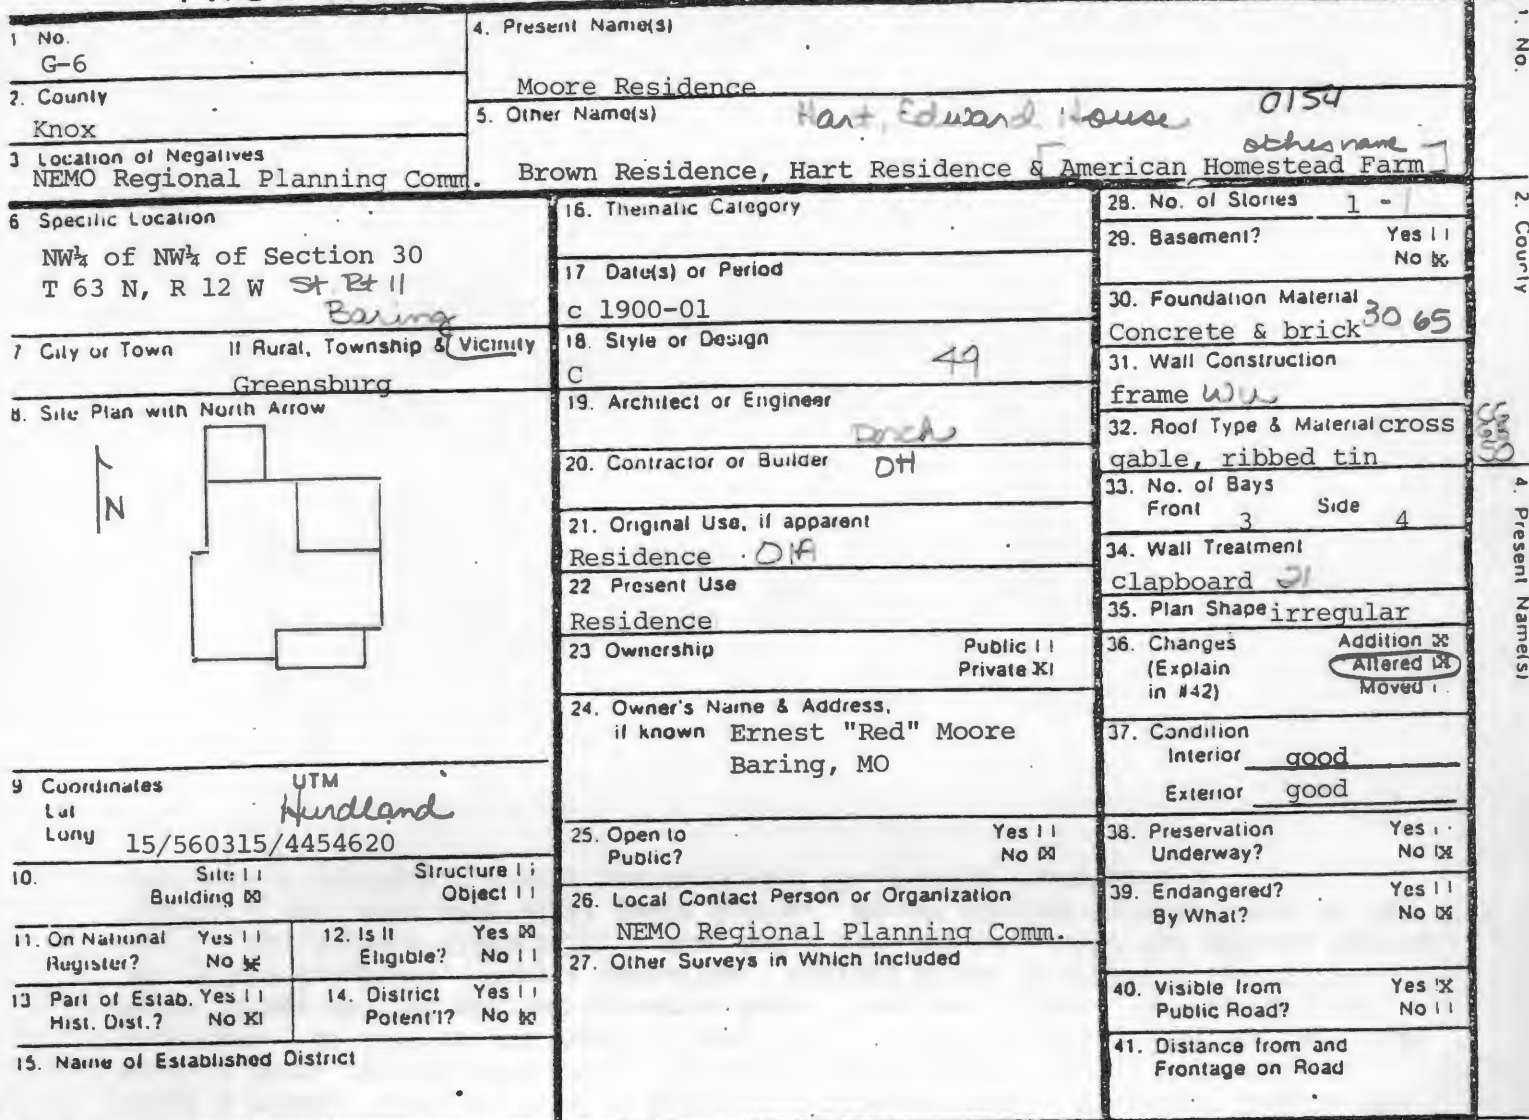 1 No.
G-6
2. County
Knox
3 Location of Negatives
NEMO Regional Planning Comm.
4. Present Name(s)
Moore Residence
5. Other Name(s) Hart, Edward House 0154
other name
Brown Residence, Hart Residence & American Homestead Farm
6 Specific Location
NW¼ of NW¼ of Section 30
T 63 N, R 12 W St. Rt 11
Baring
7 City or Town If Rural, Township & Vicinity
Greensburg
8. Site Plan with North Arrow
N
9 Coordinates UTM
Lat Hurdland
Long 15/560315/4454620
10. Site Structure
Building X Object
11. On National Yes
Register? No X
12. Is It Yes X
Eligible? No
13 Part of Estab. Yes
Hist. Dist.? No X
14. District Yes
Potent'l? No X
15. Name of Established District
16. Thematic Category
17 Date(s) or Period
c 1900-01
18. Style or Design
C 49
19. Architect or Engineer
20. Contractor or Builder OH
21. Original Use, if apparent
Residence 01A
22 Present Use
Residence
23 Ownership Public
Private X
24. Owner's Name & Address,
if known Ernest "Red" Moore
Baring, MO
25. Open to Yes
Public? No X
26. Local Contact Person or Organization
NEMO Regional Planning Comm.
27. Other Surveys in Which Included
28. No. of Stories 1 - 1
29. Basement? Yes
No X
30. Foundation Material
Concrete & brick 30 65
31. Wall Construction
frame
32. Roof Type & Material cross
gable, ribbed tin
33. No. of Bays
Front 3 Side 4
34. Wall Treatment
clapboard 21
35. Plan Shape irregular
36. Changes Addition X
(Explain Altered X
in #42) Moved
37. Condition
Interior good
Exterior good
38. Preservation Yes
Underway? No X
39. Endangered? Yes
By What? No X
40. Visible from Yes X
Public Road? No
41. Distance from and
Frontage on Road
1. No.
2. County
4. Present Name(s)